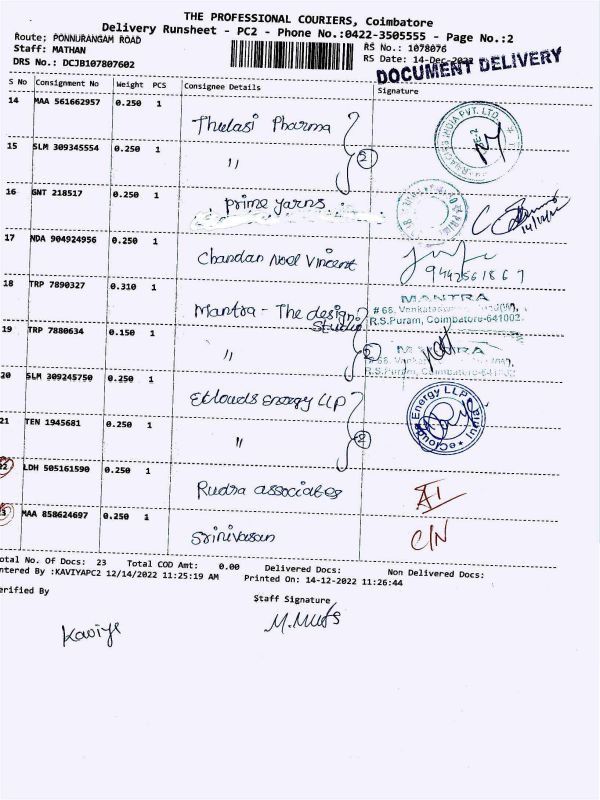 THE PROFESSIONAL COURIERS, Coimbatore
Delivery Runsheet - PC2 - Phone No.:0422-3505555 - Page No.:2
Route; PONNURANGAM ROAD
Staff: MATHAN
RS No.: 1078076
DRS No.: DCJB107807602
RS Date: 14-Dec-2022
DOCUMENT DELIVERY
S No Consignment No Weight PCS Consignee Details Signature
14 MAA 561662957 0.250 1 Thulasi Pharma
15 SLM 309345554 0.250 1 " 2
16 GNT 218517 0.250 1 prime yarns
14/12/22
17 NDA 904924956 0.250 1 Chandan Noel Vincent
9442561867
18 TRP 7890327 0.310 1 Mantra - The design Studio
MANTRA
# 66, Venkataswamy Road(W),
R.S.Puram, Coimbatore-641002.
19 TRP 7880634 0.150 1 " 2
MANTRA
R.S.Puram, Coimbatore-641002
20 SLM 309245750 0.250 1 Eclouds Energy LLP
eClouds Energy LLP
21 TEN 1945681 0.250 1 " 2
22 LDH 505161590 0.250 1 Rudra associates
23 MAA 858624697 0.250 1 Srinivasan C/N
otal No. Of Docs: 23 Total COD Amt: 0.00 Delivered Docs: Non Delivered Docs:
ntered By :KAVIYAPC2 12/14/2022 11:25:19 AM Printed On: 14-12-2022 11:26:44
erified By Staff Signature
Kaviya